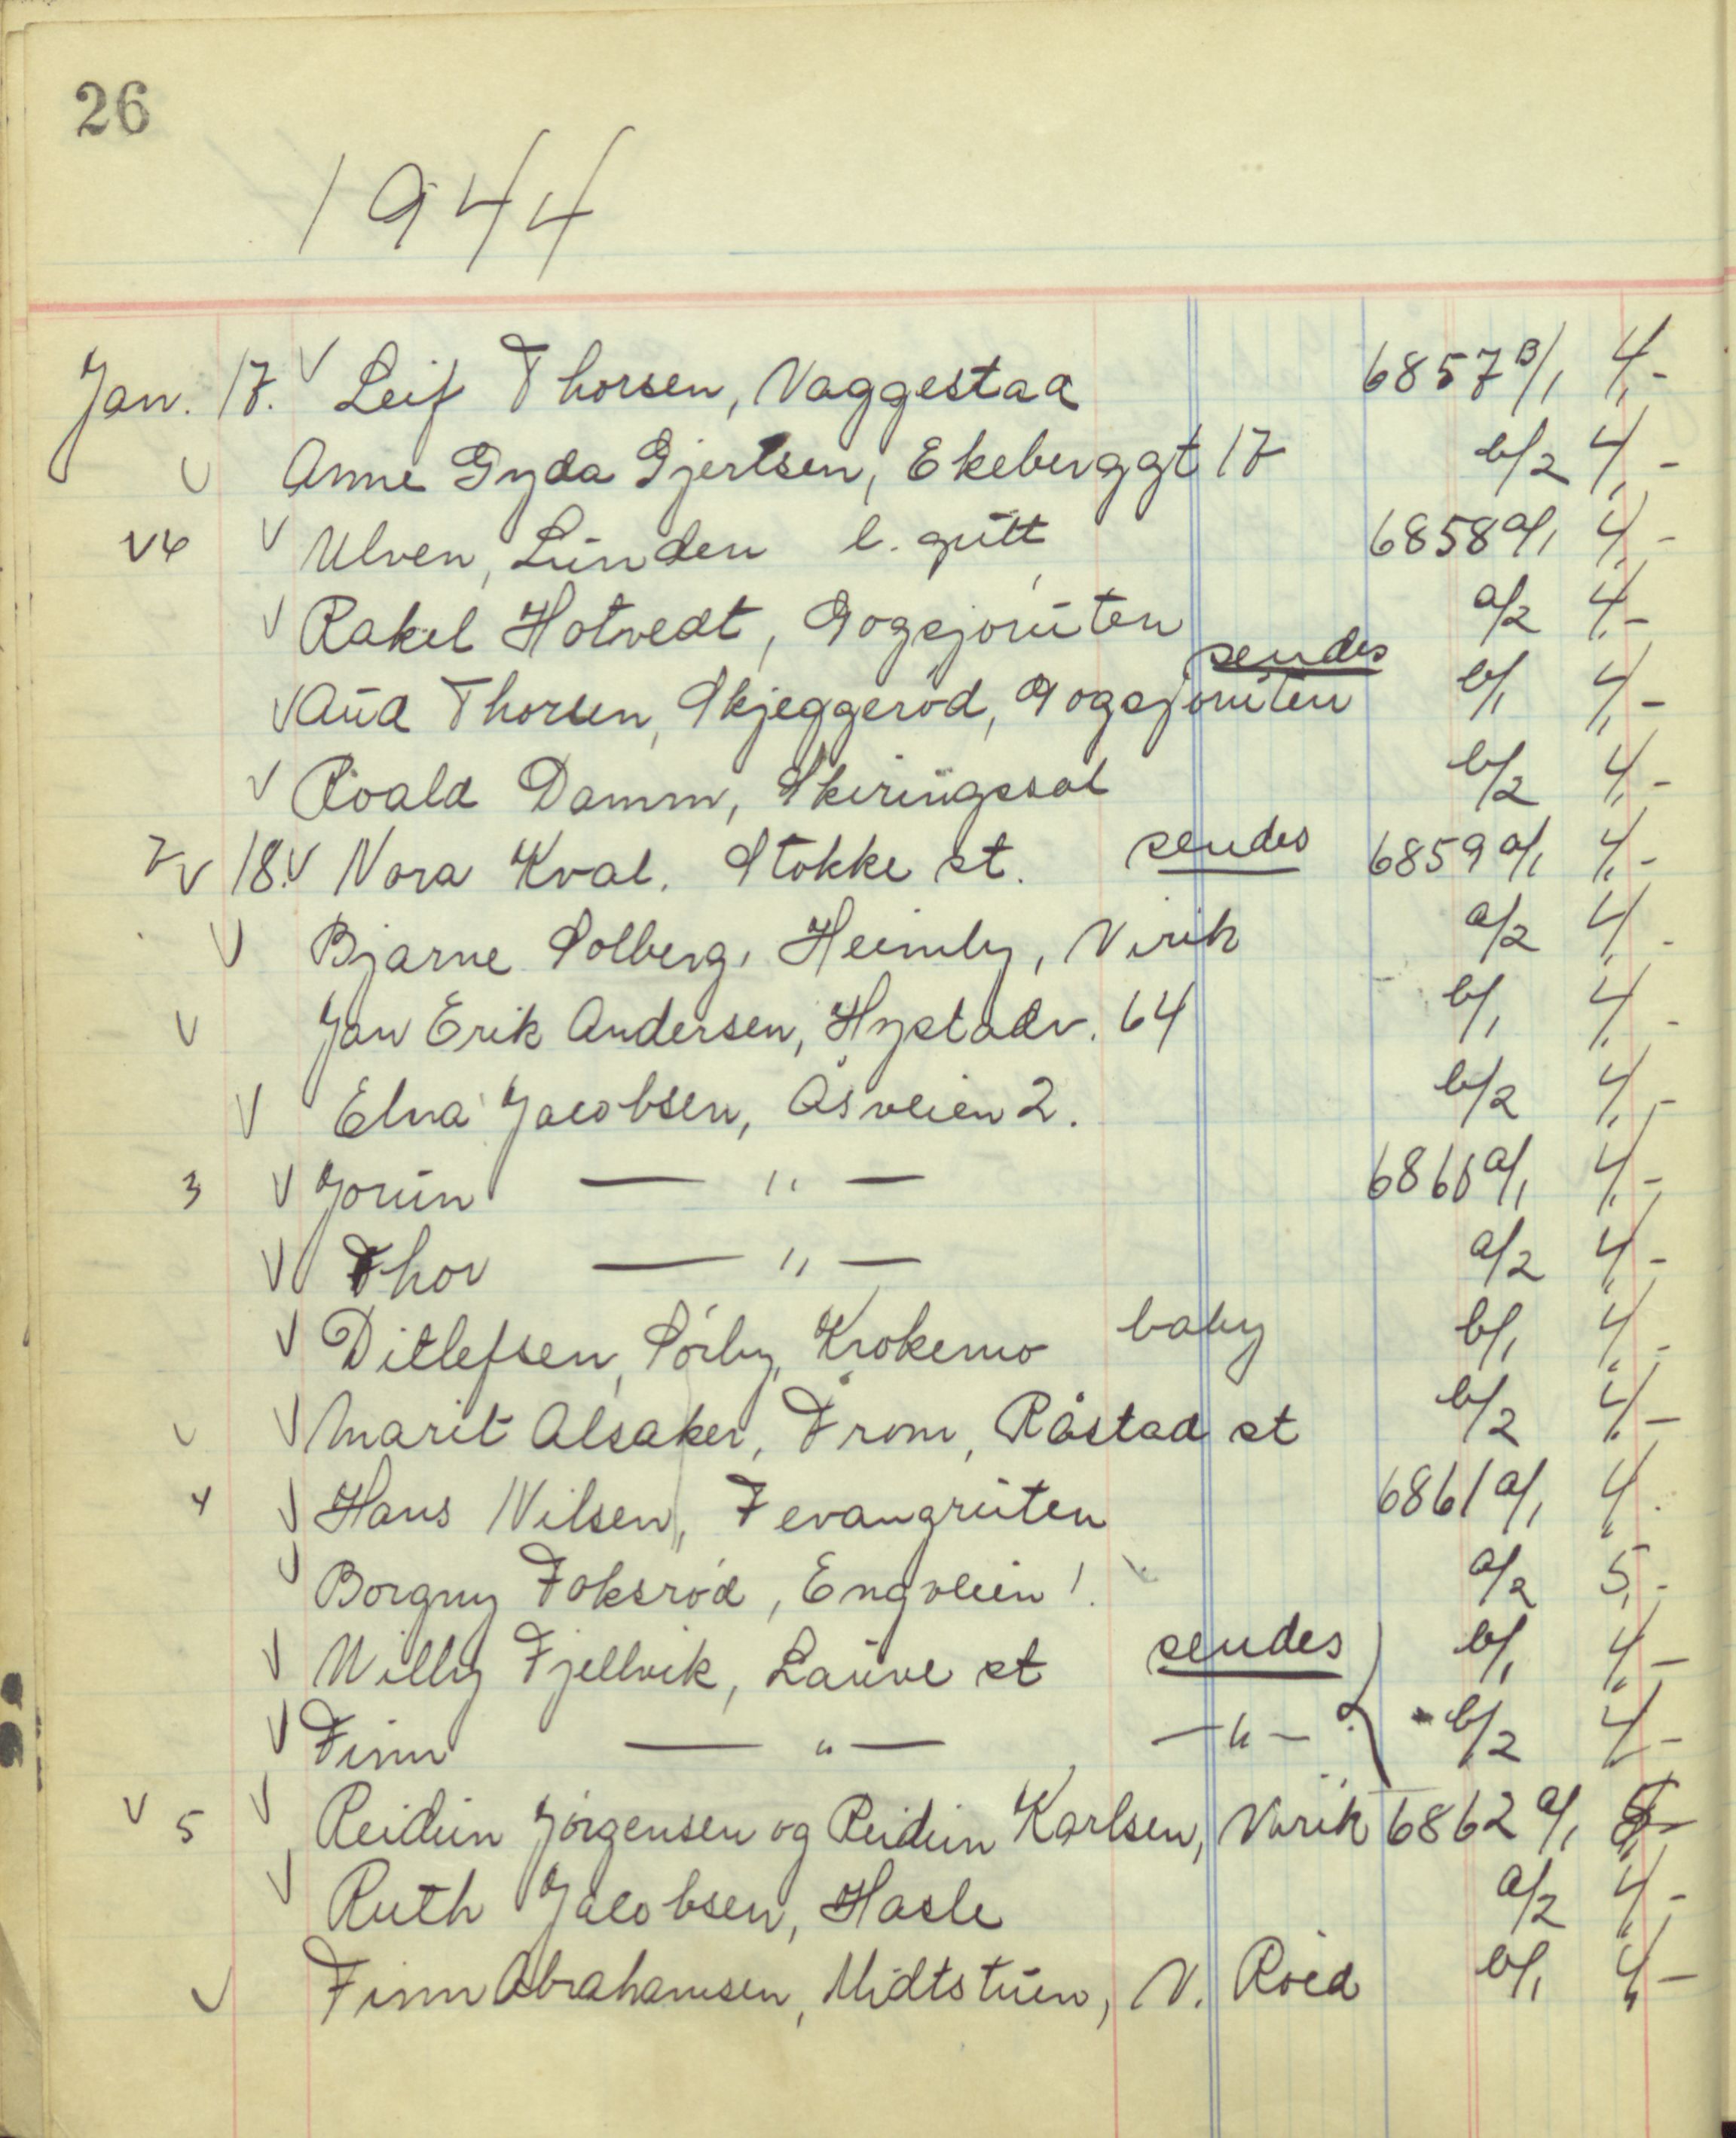 26
1944
Jan. 17. V Leif Thorsen, Vaggestad 6857 B/1 4,-
V Anne Gyda Gjertsen, Ekeberggt 17 b/2 4,-
V V Ulven, Lunden l. gutt 6858 a/1 4,-
V Rakel Hotvedt, Gogsjøruten a/2 4,-
sendes
V Aud Thorsen, Skjeggerød, Gogsjøruten b/1 4,-
V Roald Damm, Skiringssal b/2 4,-
V 18. V Nora Kval. Stokke st. sendes 6859 a/1 4,-
V Bjarne Solberg, Heimly, Virik a/2 4,-
V Jan Erik Andersen, Hystadv. 64 b/1 4,-
V Elna Jacobsen, Åsveien 2. b/2 4,-
3 V Jorun — " — 6860 a/1 4,-
V Thor — " — a/2 4,-
V Ditlefsen, Sörby, Krokemo baby b/1 4,-
V V Marit Alsaker, From, Råstad st b/2 4,-
4 V Hans Nilsen, Fevangruten 6861 a/1 4,-
V Borgny Foksrød, Engveien 1. a/2 5,-
V Willy Fjellvik, Lauve st sendes b/1 4,-
V Finn — " — — " — b/2 4,-
V 5 V Reidun Jörgensen og Reidun Karlsen, Virik 6862 a/1
V Ruth Jacobsen, Hasle a/2 4,-
V Finn Abrahamsen, Midtstuen, N. Roed b/1 4,-